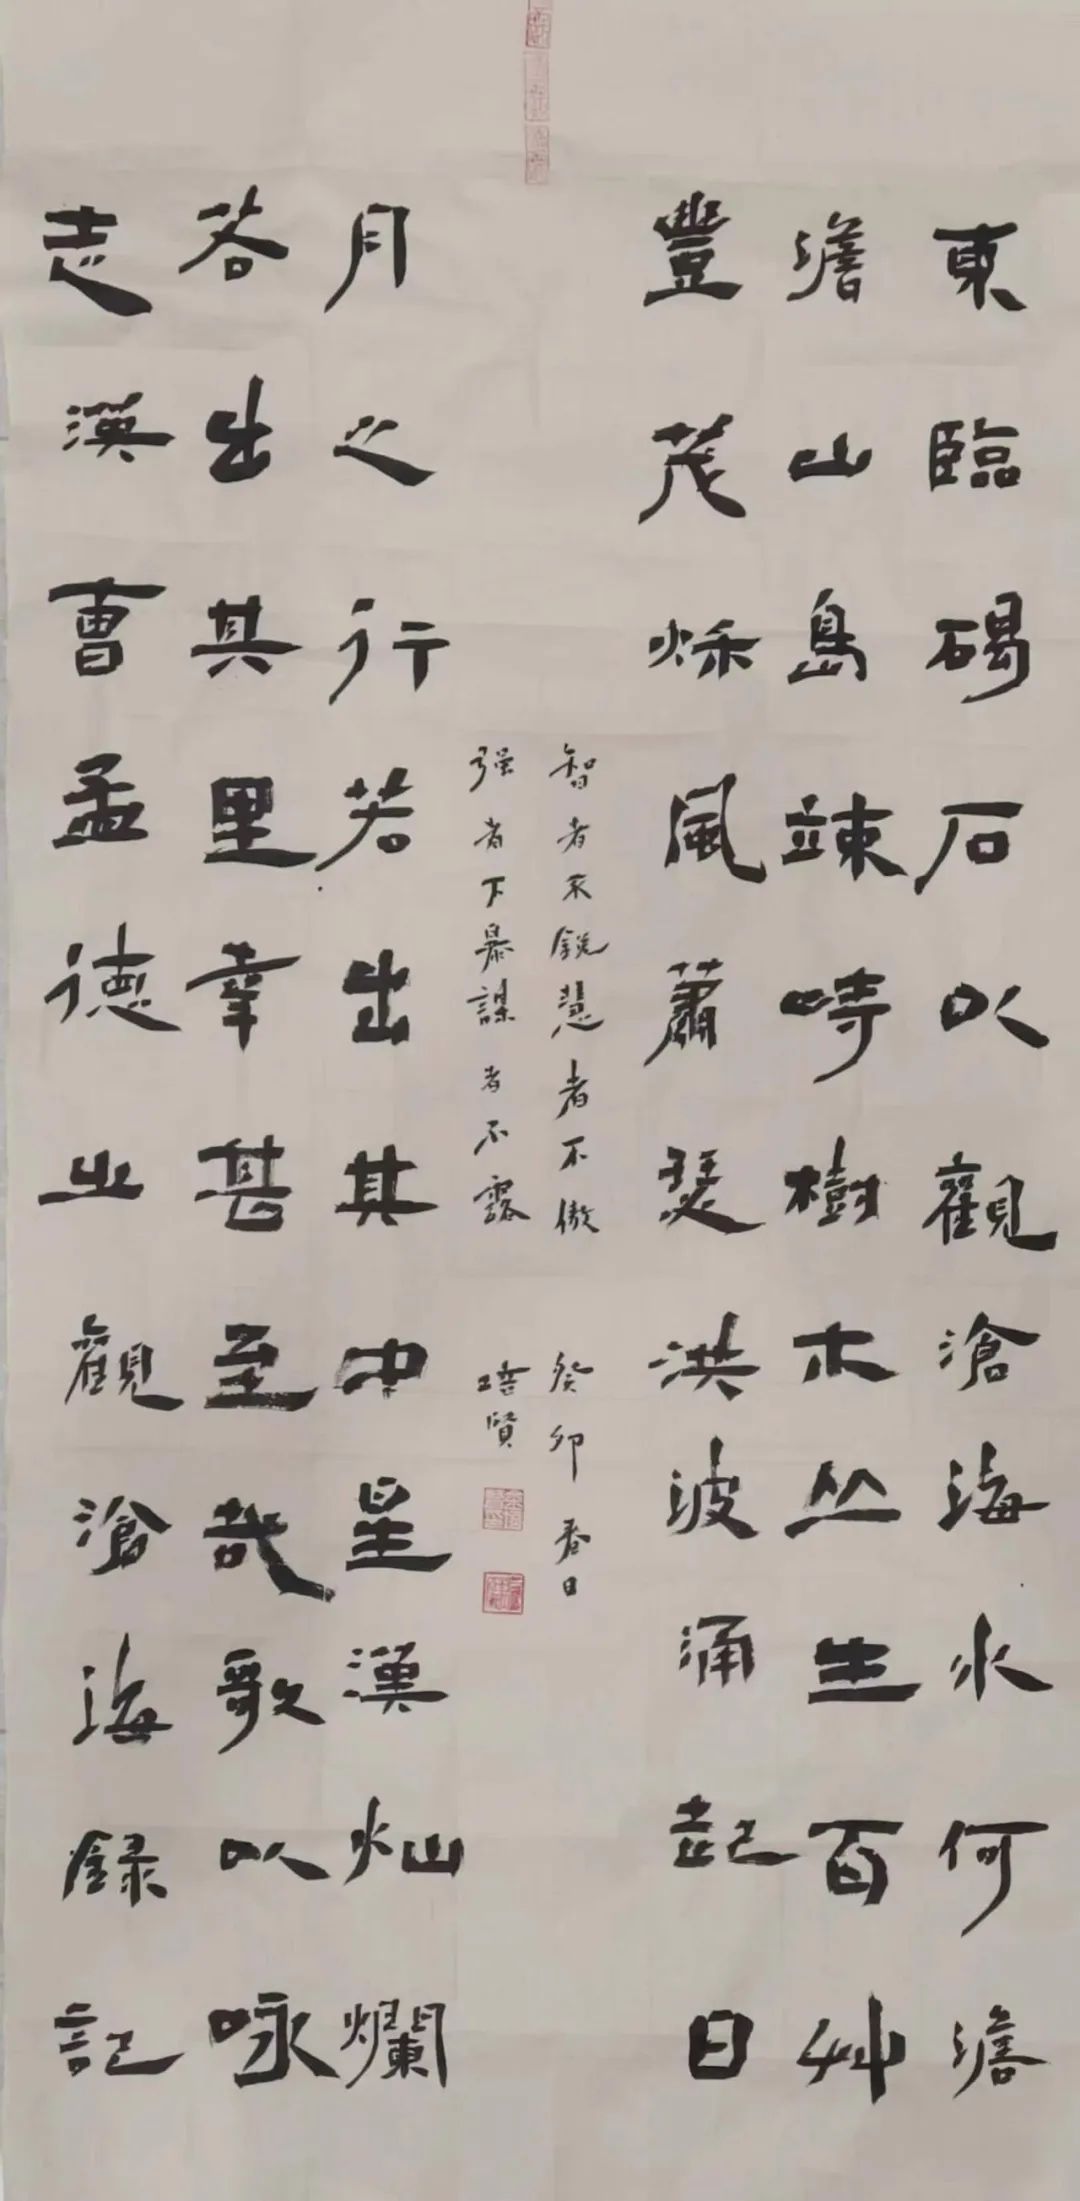 東臨碣石以觀滄海水何澹
澹山島竦峙樹木丛生百艸
豐茂秋風蕭瑟洪波涌起日
月之行若出其中星漢灿爛
若出其里幸甚至哉歌以咏
志漢曹孟德之觀滄海錄記
智者不銳慧者不傲
强者下暴謀者不露
癸卯春日
培賢